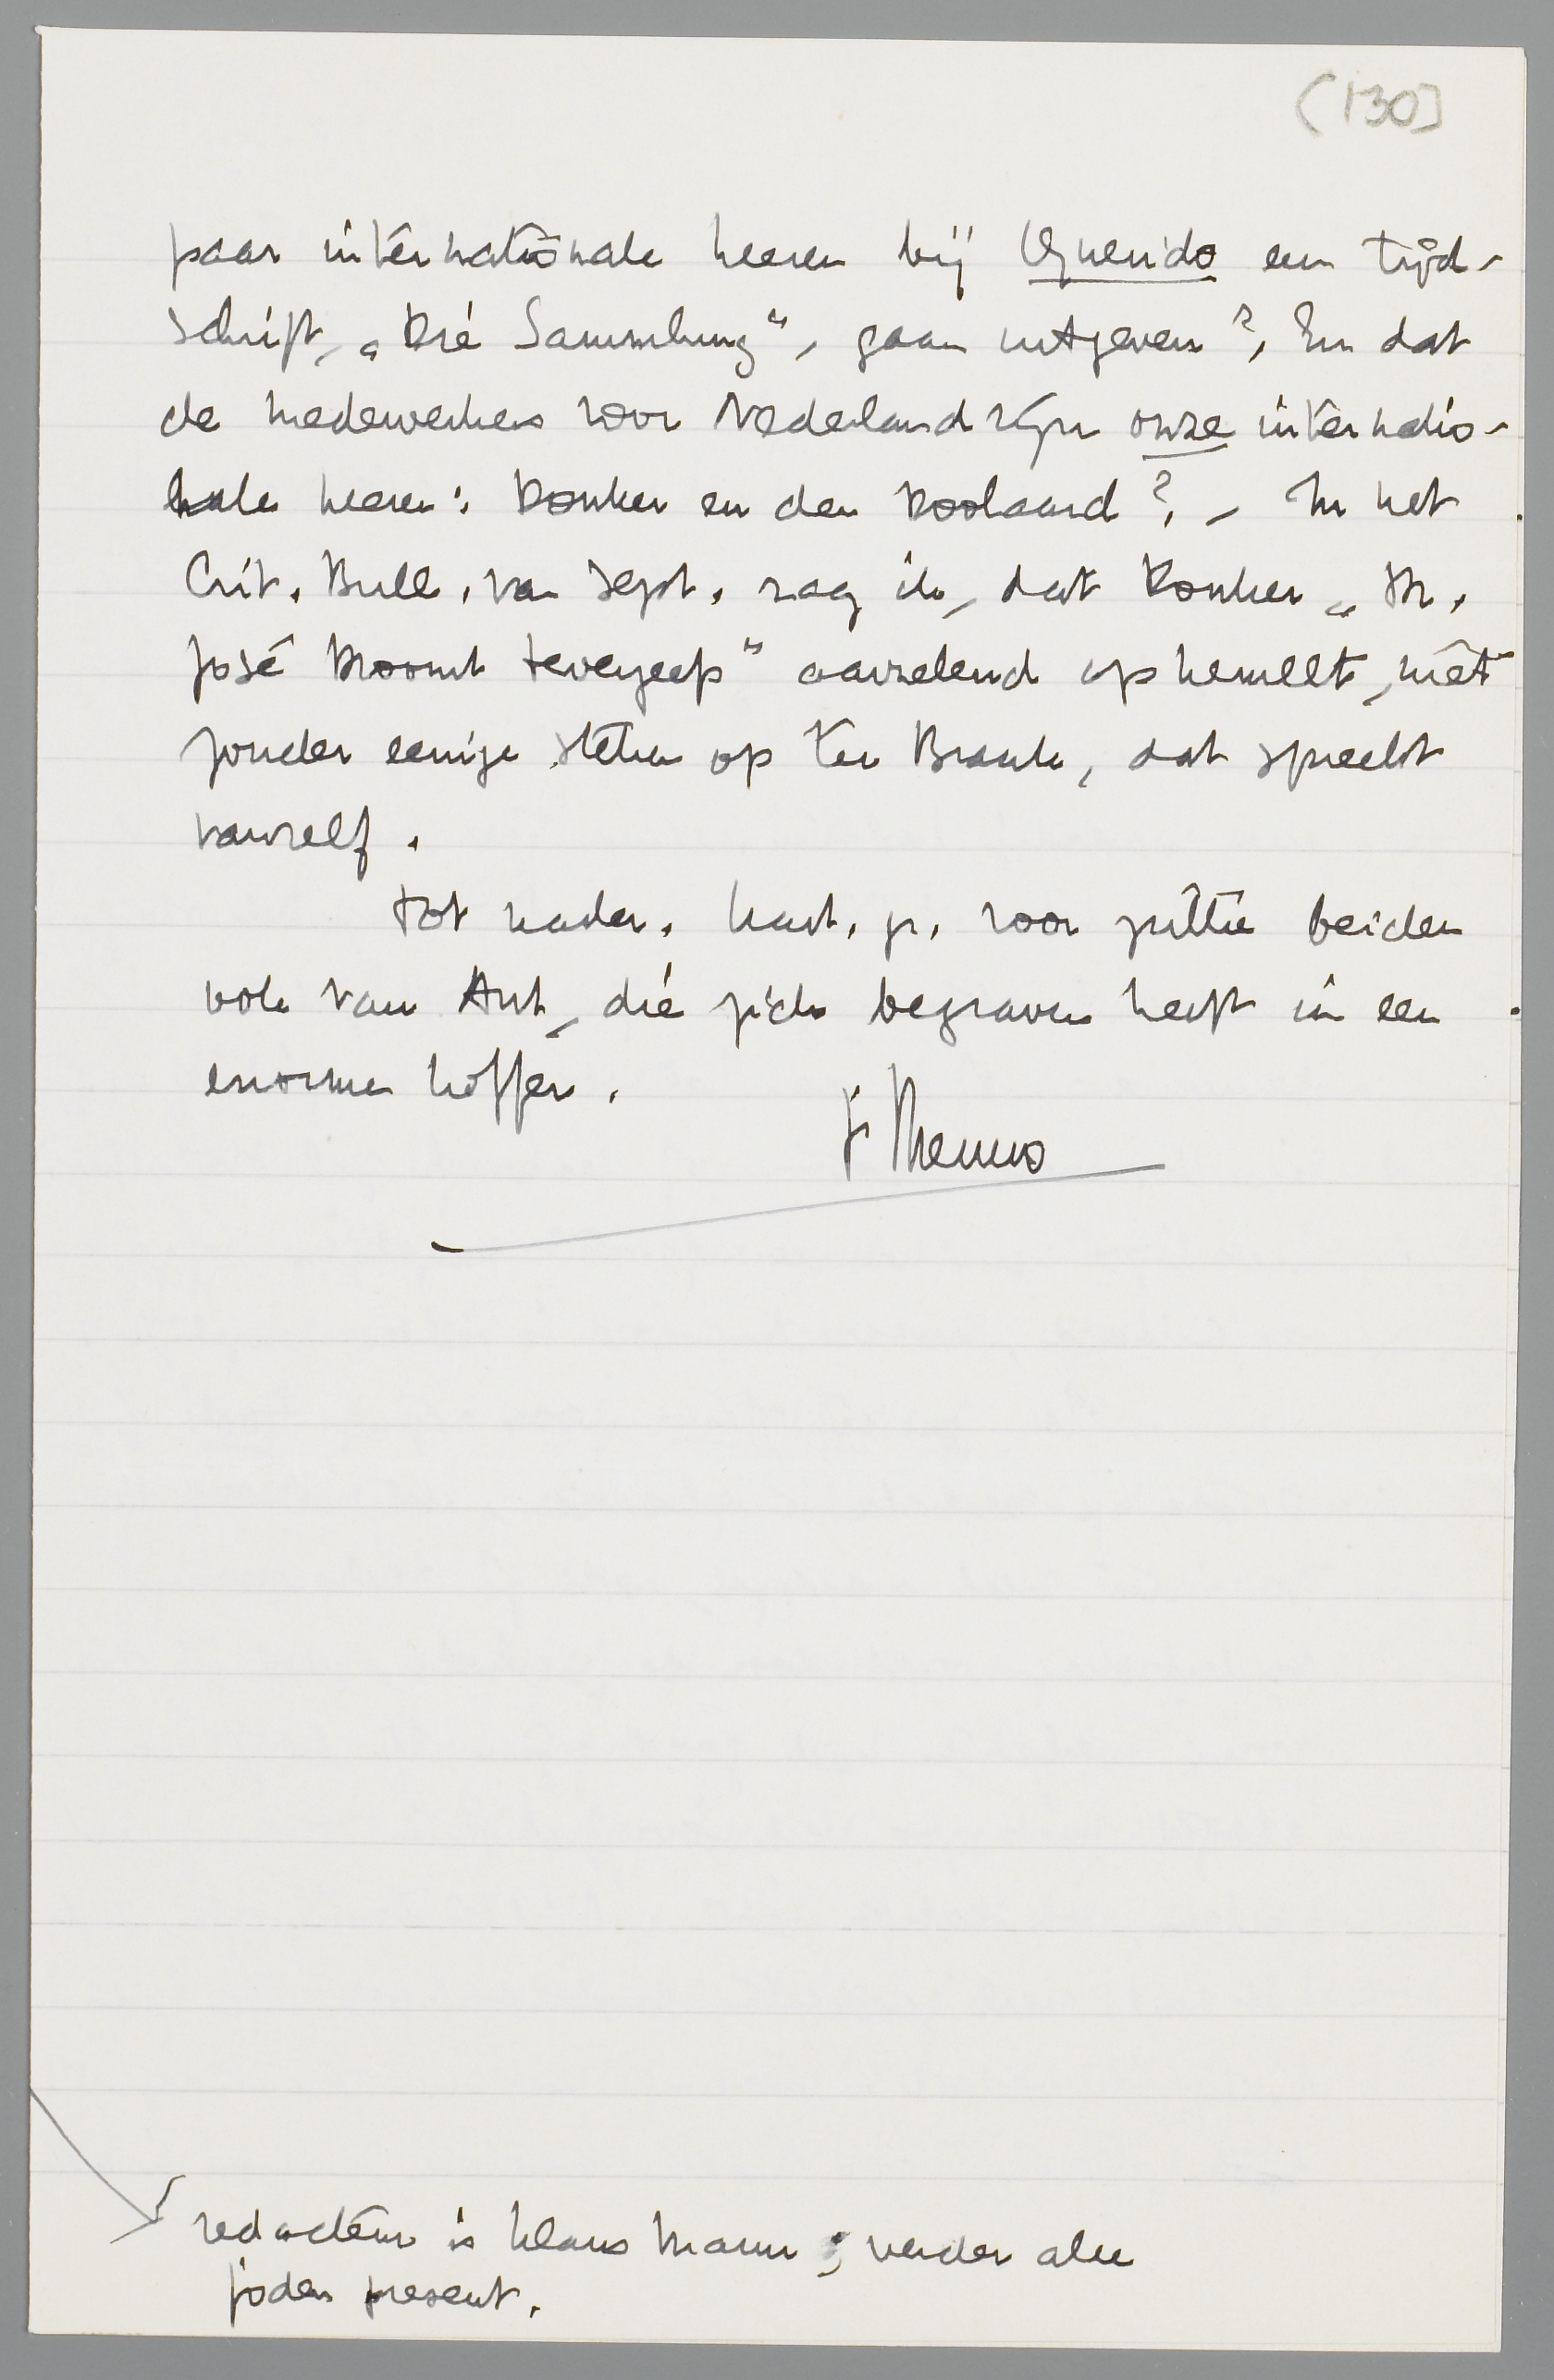 (130]
paar internationale heeren bij Querido een tijd-
schrift, „Die Sammlung", gaan uitgeven? En dat
de medewerkers voor Nederland zijn onze internatio-
nale heeren: Donker en den Doolaard? - In het
Crit. Bull. van Sept. zag ik, dat Donker „Dr.
José droomt tevergeefs" aarzelend ophemelt, niet
zonder eenige steken op Ter Braak, dat spreekt
vanzelf.
Tot nader. hart. gr. voor jullie beiden
ook van Ant, die zich begraven heeft in een
enormen koffer.
je Menno
redacteur is Klaus Mann; verder alle
joden present.